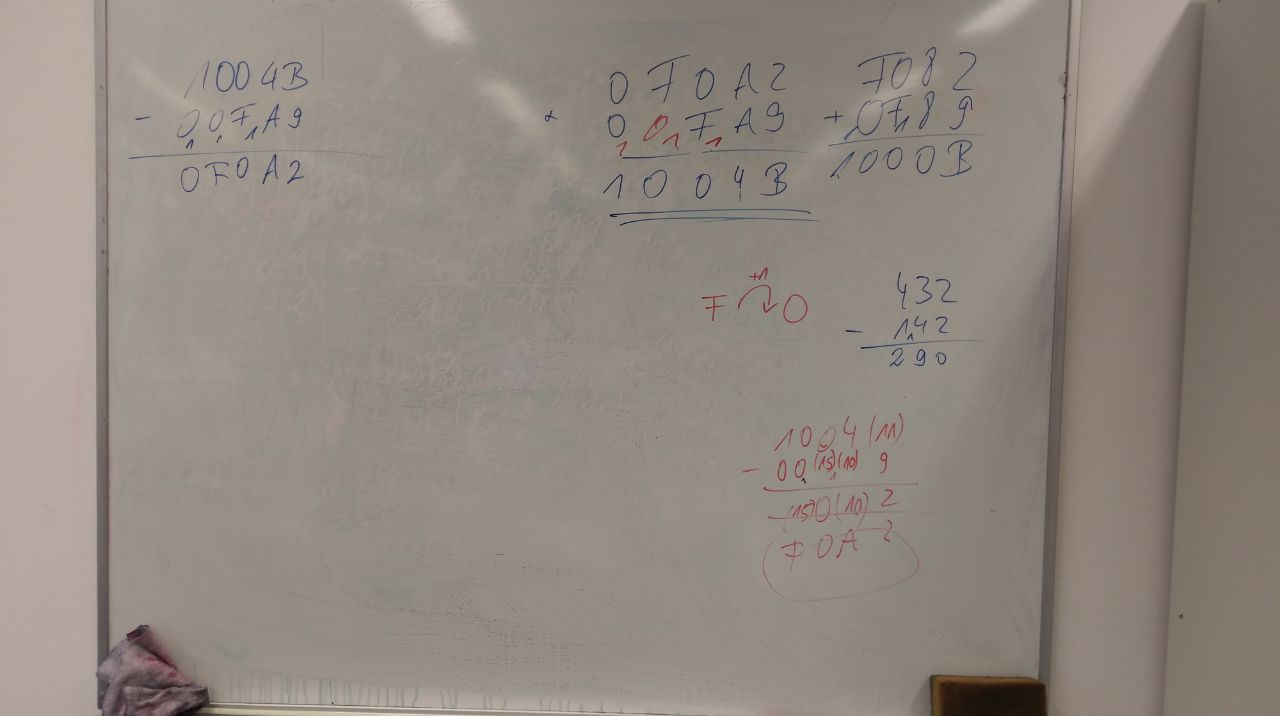 1004B
- 00FA9
0F0A2
0F0A2
+ 00FA9
1004B
F082
+ 0F89
1000B
+1
F 0
432
- 142
290
1004(11)
- 00(15)(10) 9
(15)0(10) 2
F0A2